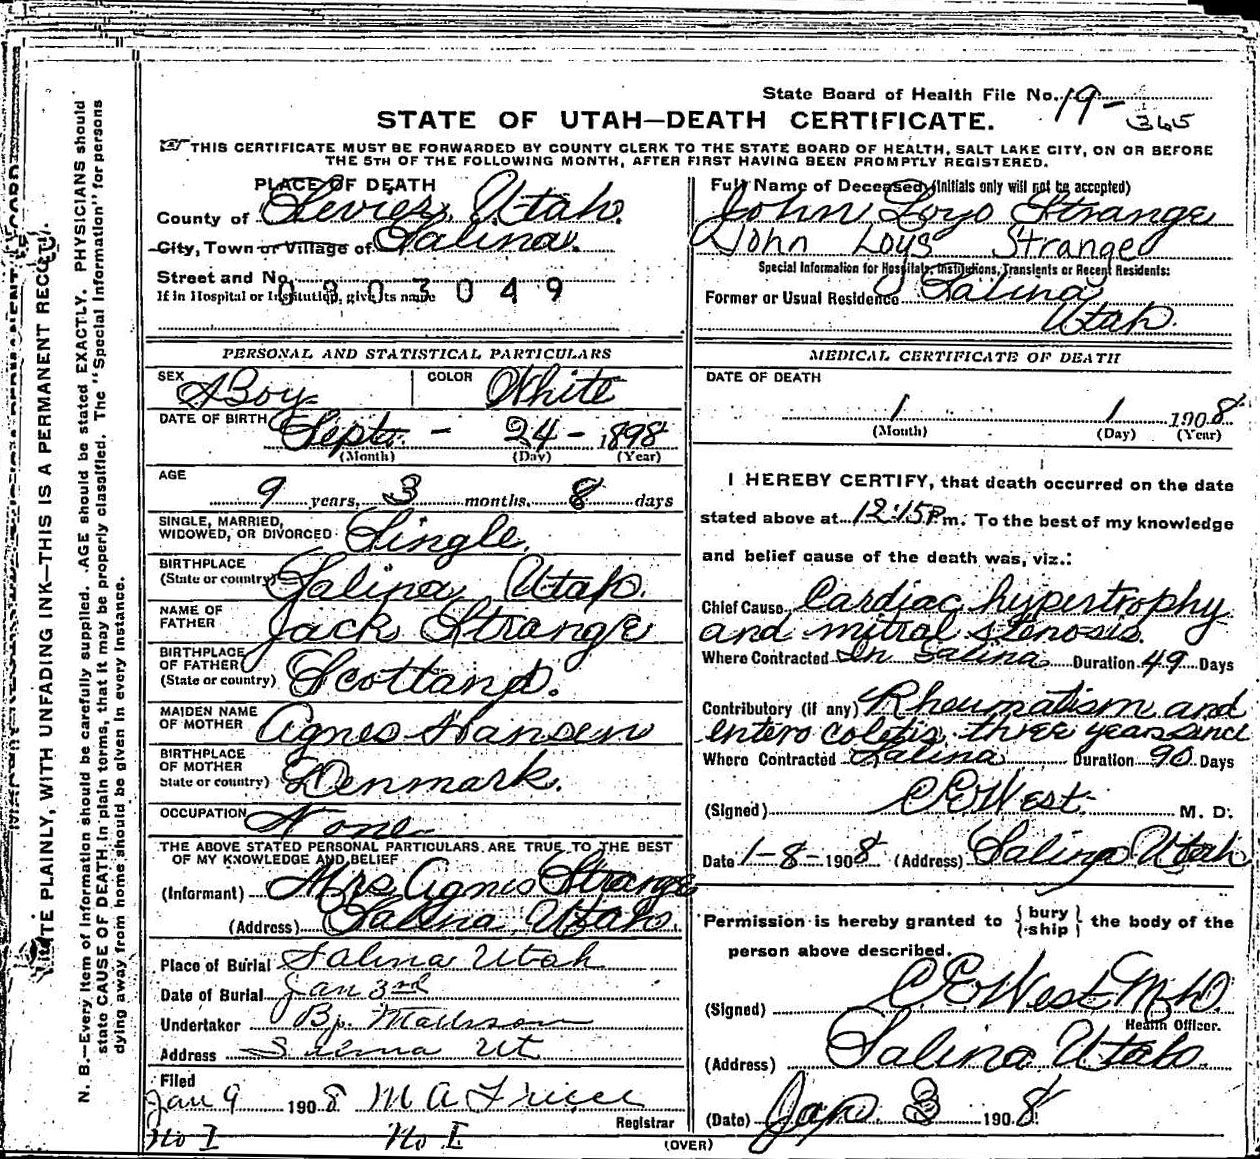 State Board of Health File No. 19-
345
STATE OF UTAH—DEATH CERTIFICATE.
THIS CERTIFICATE MUST BE FORWARDED BY COUNTY CLERK TO THE STATE BOARD OF HEALTH, SALT LAKE CITY, ON OR BEFORE
THE 5TH OF THE FOLLOWING MONTH, AFTER FIRST HAVING BEEN PROMPTLY REGISTERED.
PLACE OF DEATH
County of Sevier, Utah.
City, Town or Village of Salina.
Street and No.
If in Hospital or Institution, give its name
0803049
PERSONAL AND STATISTICAL PARTICULARS
SEX Boy COLOR White
DATE OF BIRTH Sept. - 24 - 1898
(Month) (Day) (Year)
AGE
9 years, 3 months, 8 days
SINGLE, MARRIED,
WIDOWED, OR DIVORCED Single.
BIRTHPLACE
(State or country) Salina Utah.
NAME OF
FATHER Jack Strange
BIRTHPLACE
OF FATHER
(State or country) Scotland.
MAIDEN NAME
OF MOTHER Agnes Hansen
BIRTHPLACE
OF MOTHER
State or country) Denmark.
OCCUPATION None
THE ABOVE STATED PERSONAL PARTICULARS ARE TRUE TO THE BEST
OF MY KNOWLEDGE AND BELIEF
(Informant) Mrs Agnes Strange
(Address) Salina, Utah.
Place of Burial Salina Utah
Date of Burial Jan 3rd
Undertaker Bp. Madsen
Address Salina Ut
Filed
Jan 9 1908 M A
Registrar
No I No I
(OVER)
Full Name of Deceased (Initials only will not be accepted)
John Loyo Strange
John Loys Strange
Special Information for Hospitals, Institutions, Transients or Recent Residents:
Former or Usual Residence Salina
Utah.
MEDICAL CERTIFICATE OF DEATH
DATE OF DEATH
1 1 1908
(Month) (Day) (Year)
I HEREBY CERTIFY, that death occurred on the date
stated above at 12:15 P.m. To the best of my knowledge
and belief cause of the death was, viz.:
Chief Cause Cardiac hypertrophy
and mitral stenosis.
Where Contracted In Salina Duration 49 Days
Contributory (if any) Rheumatism and
entero colitis, three years since
Where Contracted Salina Duration 90 Days
(Signed) C E West. M. D.
Date 1-8-1908 (Address) Salina Utah
Permission is hereby granted to { bury / ship } the body of the
person above described.
(Signed) C E West M.D.
Health Officer.
(Address) Salina Utah.
(Date) Jan. 3 1908
WRITE PLAINLY, WITH UNFADING INK—THIS IS A PERMANENT RECORD.
N. B.—Every item of information should be carefully supplied. AGE should be stated EXACTLY. PHYSICIANS should
state CAUSE OF DEATH in plain terms, that it may be properly classified. The "Special Information" for persons
dying away from home should be given in every instance.